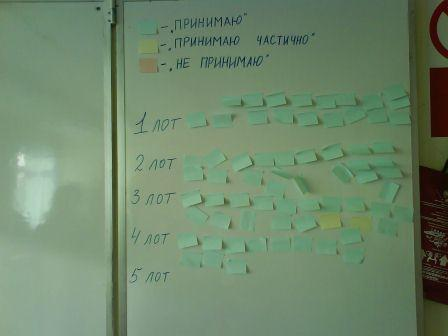 -„ПРИНИМАЮ"
-„ПРИНИМАЮ ЧАСТИЧНО"
-„НЕ ПРИНИМАЮ"
1 ЛОТ
2 ЛОТ
3 ЛОТ
4 ЛОТ
5 ЛОТ